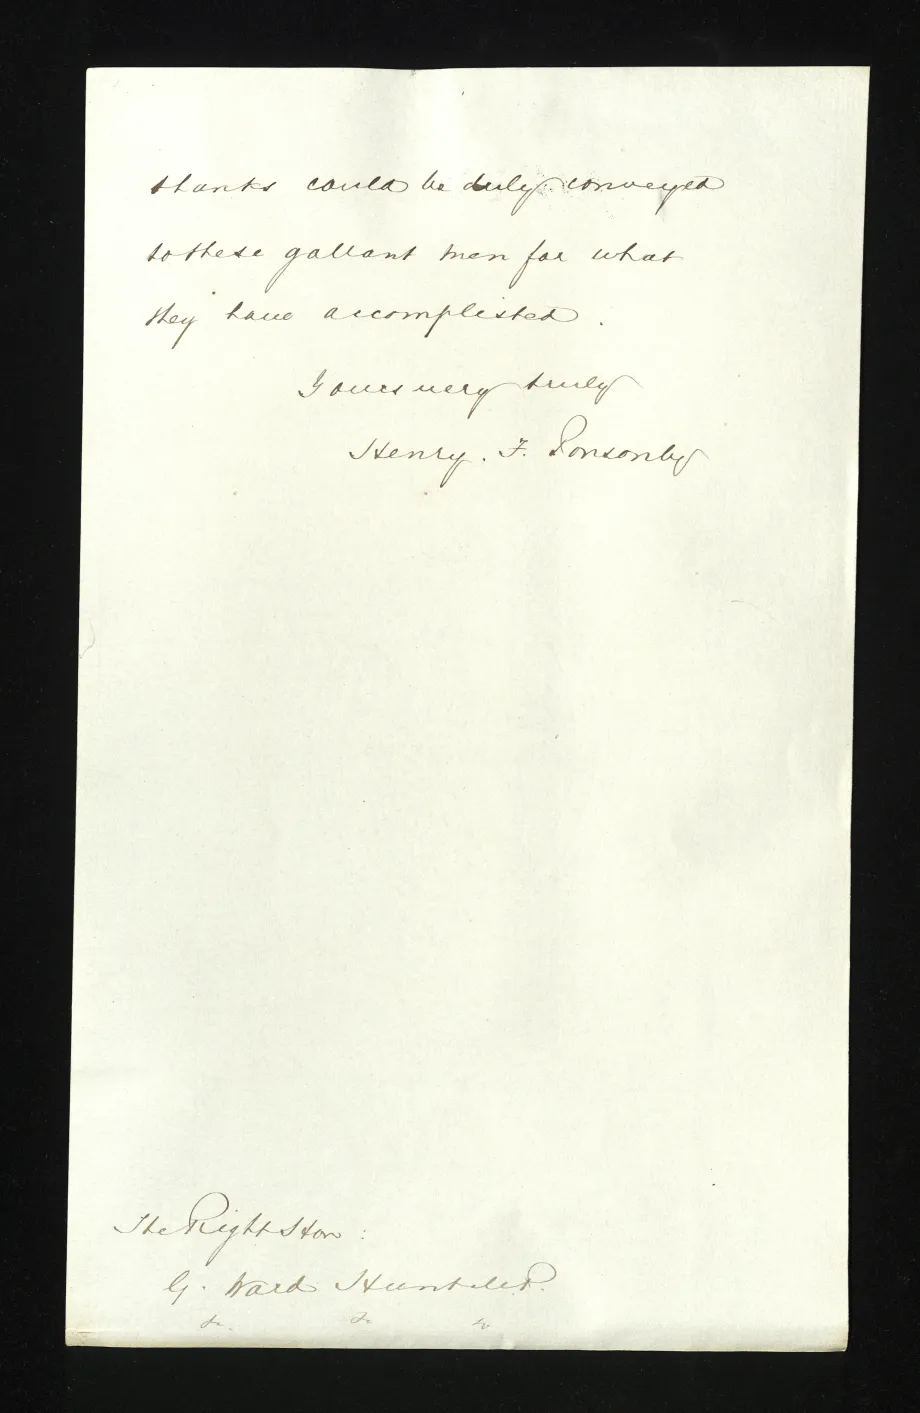 thanks could be duly conveyed
to these gallant men for what
they have accomplished.
Yours very truly
Henry. F. Ponsonby
The Right Hon:
G. Ward Hunt M.P.
&c. &c &c